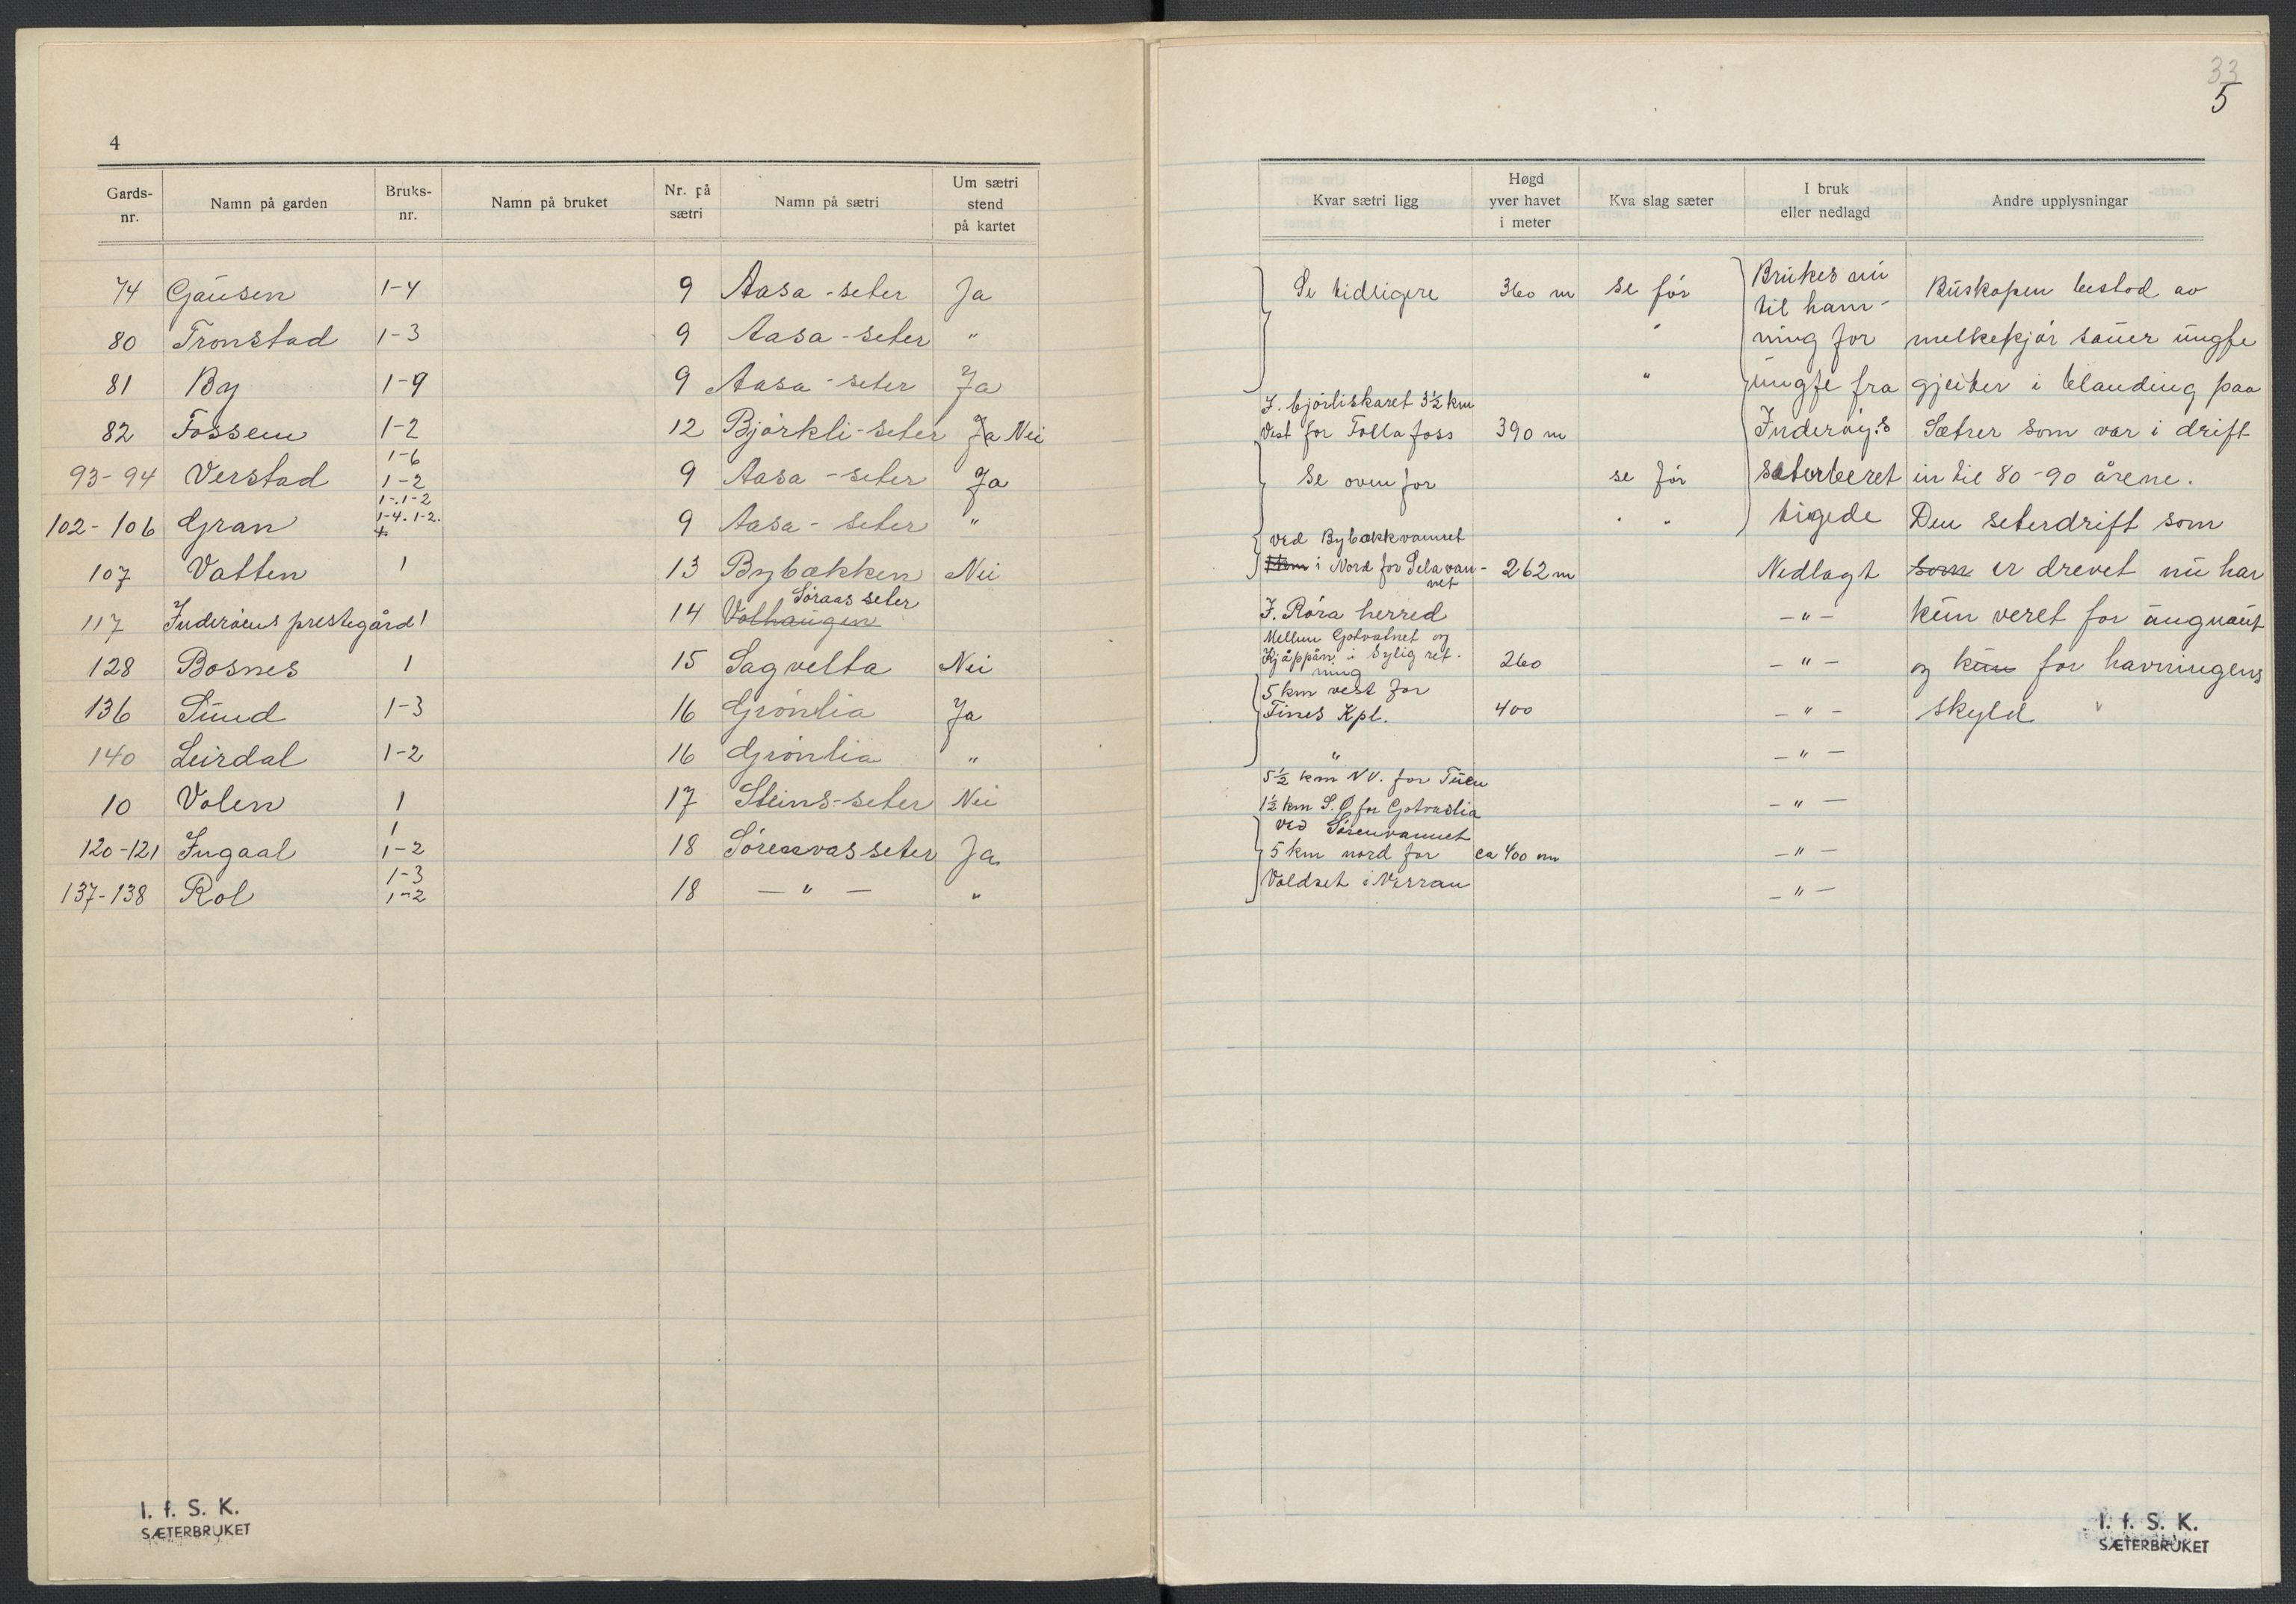 4
Gards-nr. Namn på garden Bruks-nr. Namn på bruket Nr. på sætri Namn på sætri Um sætri stend på kartet
74 Gausen 1-4 9 Aasa-seter Ja
80 Tronstad 1-3 9 Aasa-seter "
81 By 1-9 9 Aasa-seter Ja
82 Fossem 1-2 12 Björkli-seter Ja Nei
1-6
93-94 Verstad 1-2 9 Aasa-seter Ja
1-.1-2
102-106 Gran 1-4. 1-2. 9 Aasa-seter "
107 Vatten 1 13 Bybækken Nei
Søraas seter
117 Inderøens prestegård 1 14 Volhaugen
128 Bosnes 1 15 Sagvelta Nei
136 Sund 1-3 16 Grönlia Ja
140 Leirdal 1-2 16 Grönlia "
10 Volen 1 17 Steins-seter Nei
1
120-121 Ingaal 1-2 18 Sørenvasseter Ja
1-3
137-138 Rol 1-2 18 — " — "
I. f. S. K.
SÆTERBRUKET
33
5
Kvar sætri ligg Høgd yver havet i meter Kva slag sæter I bruk eller nedlagd Andre upplysningar
Se tidligere 360 m se för Brukes nu Buskapen bestod av
til ham-
" ning for melkekjör sauer ungfe
" ungfe fra gjeiter i blanding paa
I. bjørliskaret 3½ km
Vest for Follafoss 390 m Inderøy:s Sætrer som var i drift
Se ovenfor se för seterberet in til 80-90 årene.
" " tigede Den seterdrift som
ved Bybækkvannet
i Nord for Selavan- 262 m Nedlagt som er drevet nu har
net
I. Röra herred — " — kun veret for ungnaut
Mellem Gotvatnet og
Kjåppån i sylig ret- 260 — " — og kun for havningens
ning
5 km vest for
Tines Kpl. 400 — " — skyld
" — " —
5½ km NV. for Tuen
1½ km S.Ø for Gotvaslia — " —
ved Sørenvannet
5 km nord for ca 400 m — " —
Voldset i Verran — " —
I. f. S. K.
SÆTERBRUKET